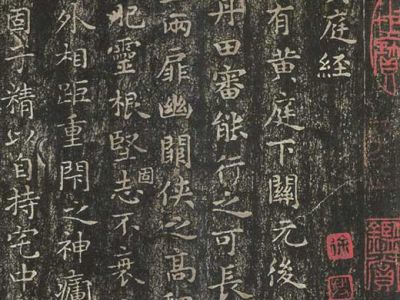 庭經
有黄庭下關元後
丹田審能行之可長
兩扉幽關俠之高
肥靈根堅固志不衰
外相距重閇之神廬
固守精以自持宅中